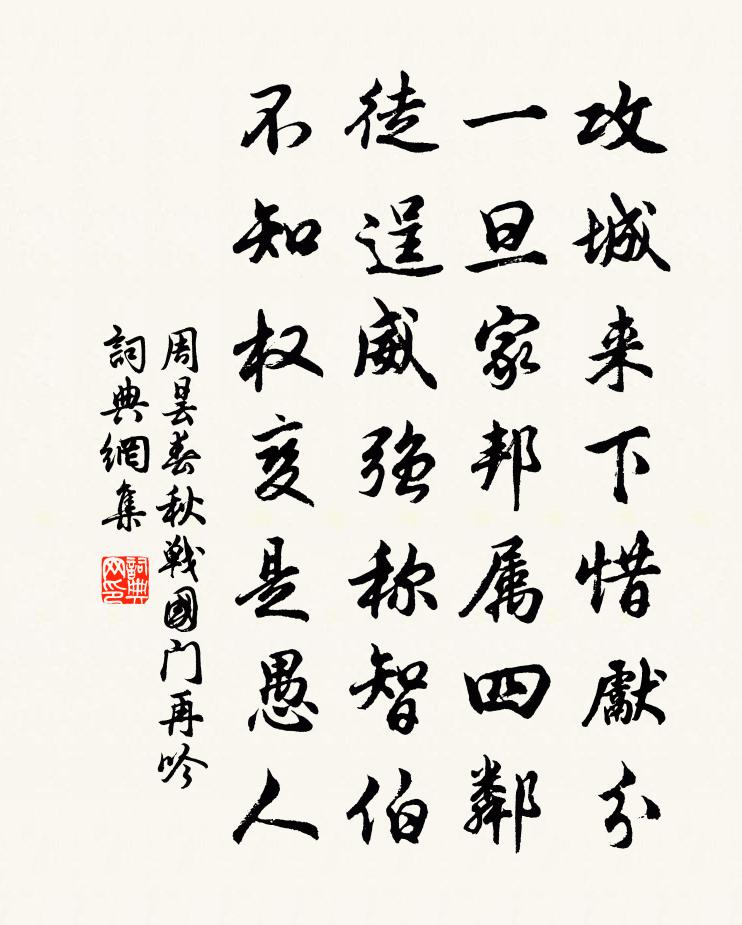 攻城来下惜獻分
一旦家邦属四鄰
徒逞威强称智伯
不知权变是愚人
周昙春秋戦國门再吟
詞典網集
詞典网印